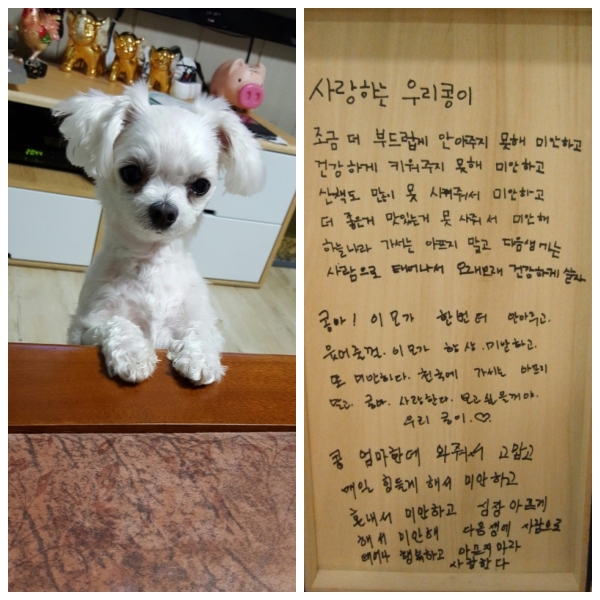 사랑하는 우리콩이
조금 더 부드럽게 안아주지 못해 미안하고
건강하게 키워주지 못해 미안하고
산책도 많이 못 시켜줘서 미안하고
더 좋은거 맛있는거 못 사줘서 미안해
하늘나라 가서는 아프지 말고 다음생에는
사람으로 태어나서 오래오래 건강하게 살자
콩아! 이모가 한번더 안아주고.
이모가 항상. 미안하고.
또 미안하다. 천국에 가서는 아프지
말고. 콩아. 사랑한다. 보고싶을거야.
우리 콩이.♡.
콩 엄마한테 와줘서 고맙고
매일 힘들게 해서 미안하고
혼내서 미안하고 심장아프게
해서 미안해 다음생에 사람으로
태어나 행복하고 아프지마라
사랑한다